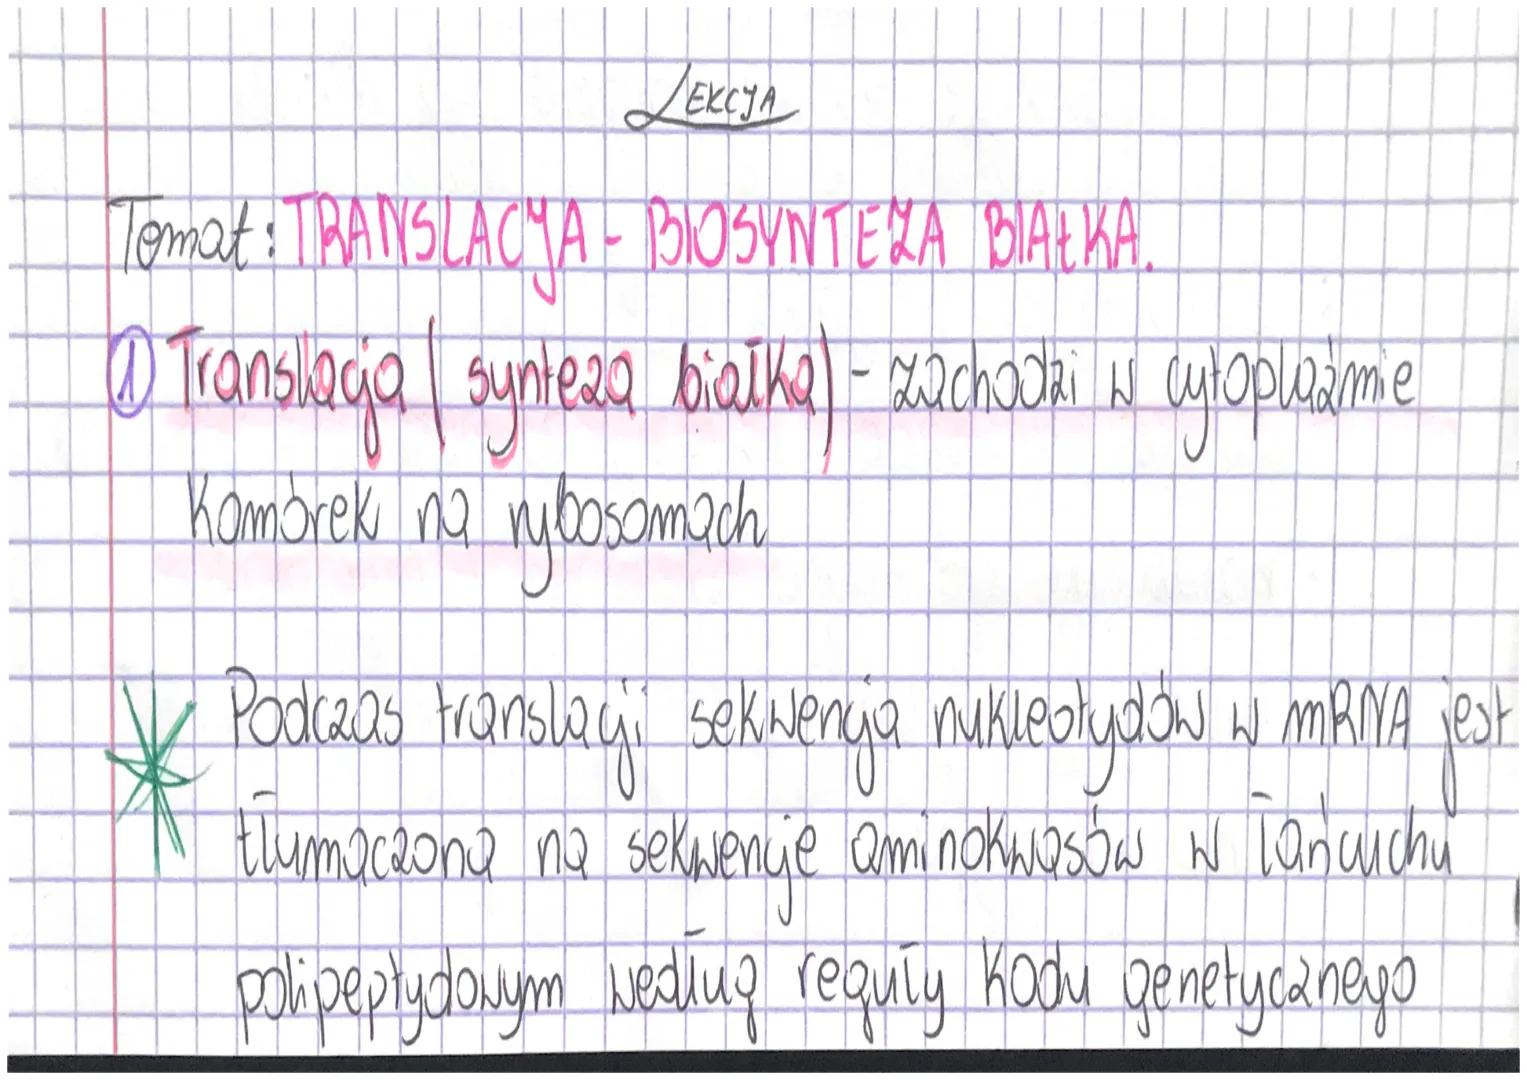 LEKCJA
Temat: TRANSLACJA - BIOSYNTEZA BIAŁKA.
1 Translacja (synteza białka) - zachodzi w cytoplaźmie
komórek na rybosomach
Podczas translacji sekwencja nukleotydów w mRNA jest
tłumaczona na sekwencje aminokwasów w łańcuchu
polipeptydowym według reguły kodu genetycznego